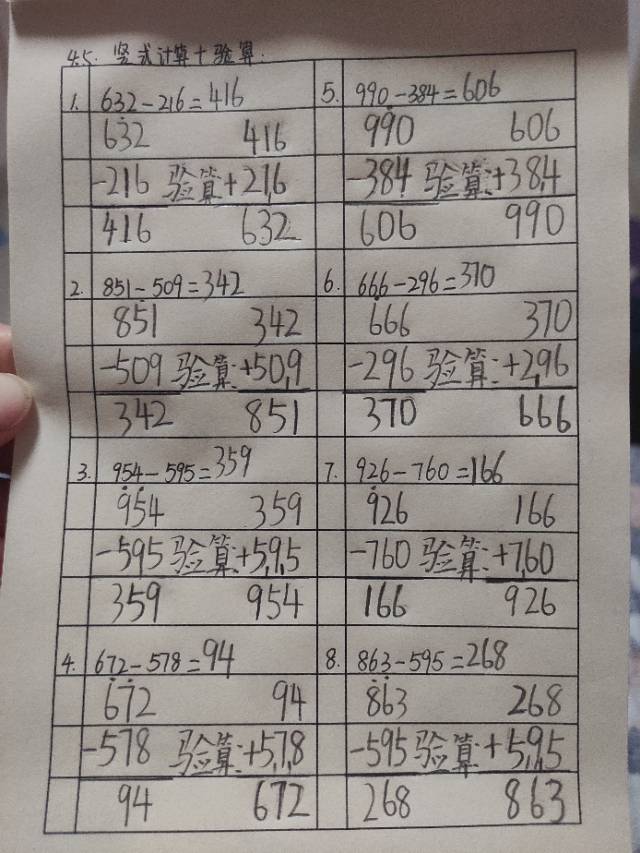 4.5. 竖式计算+验算:
1. 632-216=416
632 416
-216 验算+216
416 632
2. 851-509=342
851 342
-509 验算:+509
342 851
3. 954-595=359
954 359
-595 验算:+595
359 954
4. 672-578=94
672 94
-578 验算:+578
94 672
5. 990-384=606
990 606
-384 验算:+384
606 990
6. 666-296=370
666 370
-296 验算:+296
370 666
7. 926-760=166
926 166
-760 验算:+760
166 926
8. 863-595=268
863 268
-595 验算:+595
268 863